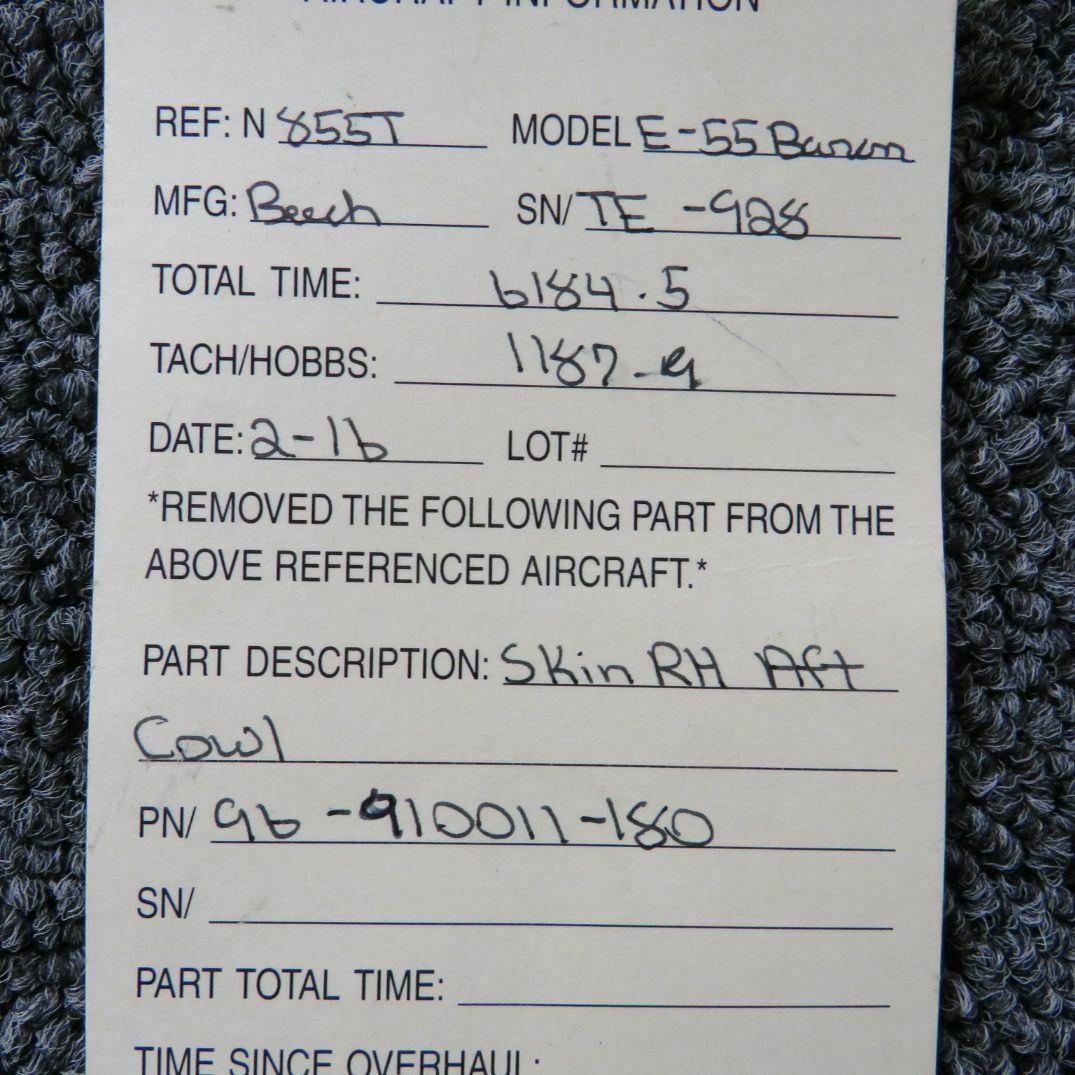 AIRCRAFT INFORMATION
REF: N 855T MODEL E-55 Baron
MFG: Beech SN/ TE -928
TOTAL TIME: 6184.5
TACH/HOBBS: 1187.9
DATE: 2-16 LOT#
*REMOVED THE FOLLOWING PART FROM THE
ABOVE REFERENCED AIRCRAFT.*
PART DESCRIPTION: Skin RH Aft
Cowl
PN/ 96-910011-180
SN/
PART TOTAL TIME:
TIME SINCE OVERHAUL: